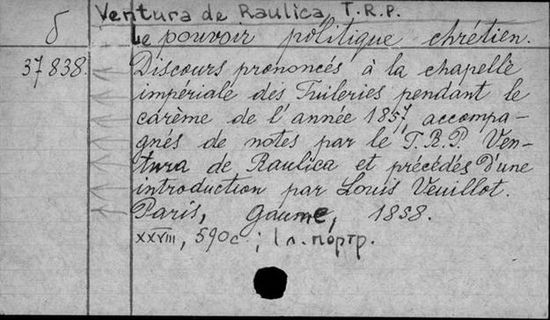 Ventura de Raulica, T.R.P.
б
Le pouvoir politique chrétien.
37838.
Discours prononcés à la chapelle
impériale des Tuileries pendant le
carème de l'année 1857, accompa-
gnés de notes par le T.R.P. Ven-
tura de Raulica et précédés d'une
introduction par Louis Veuillot.
Paris, Gaume, 1858.
XXVIII, 590c.; 1 л. портр.